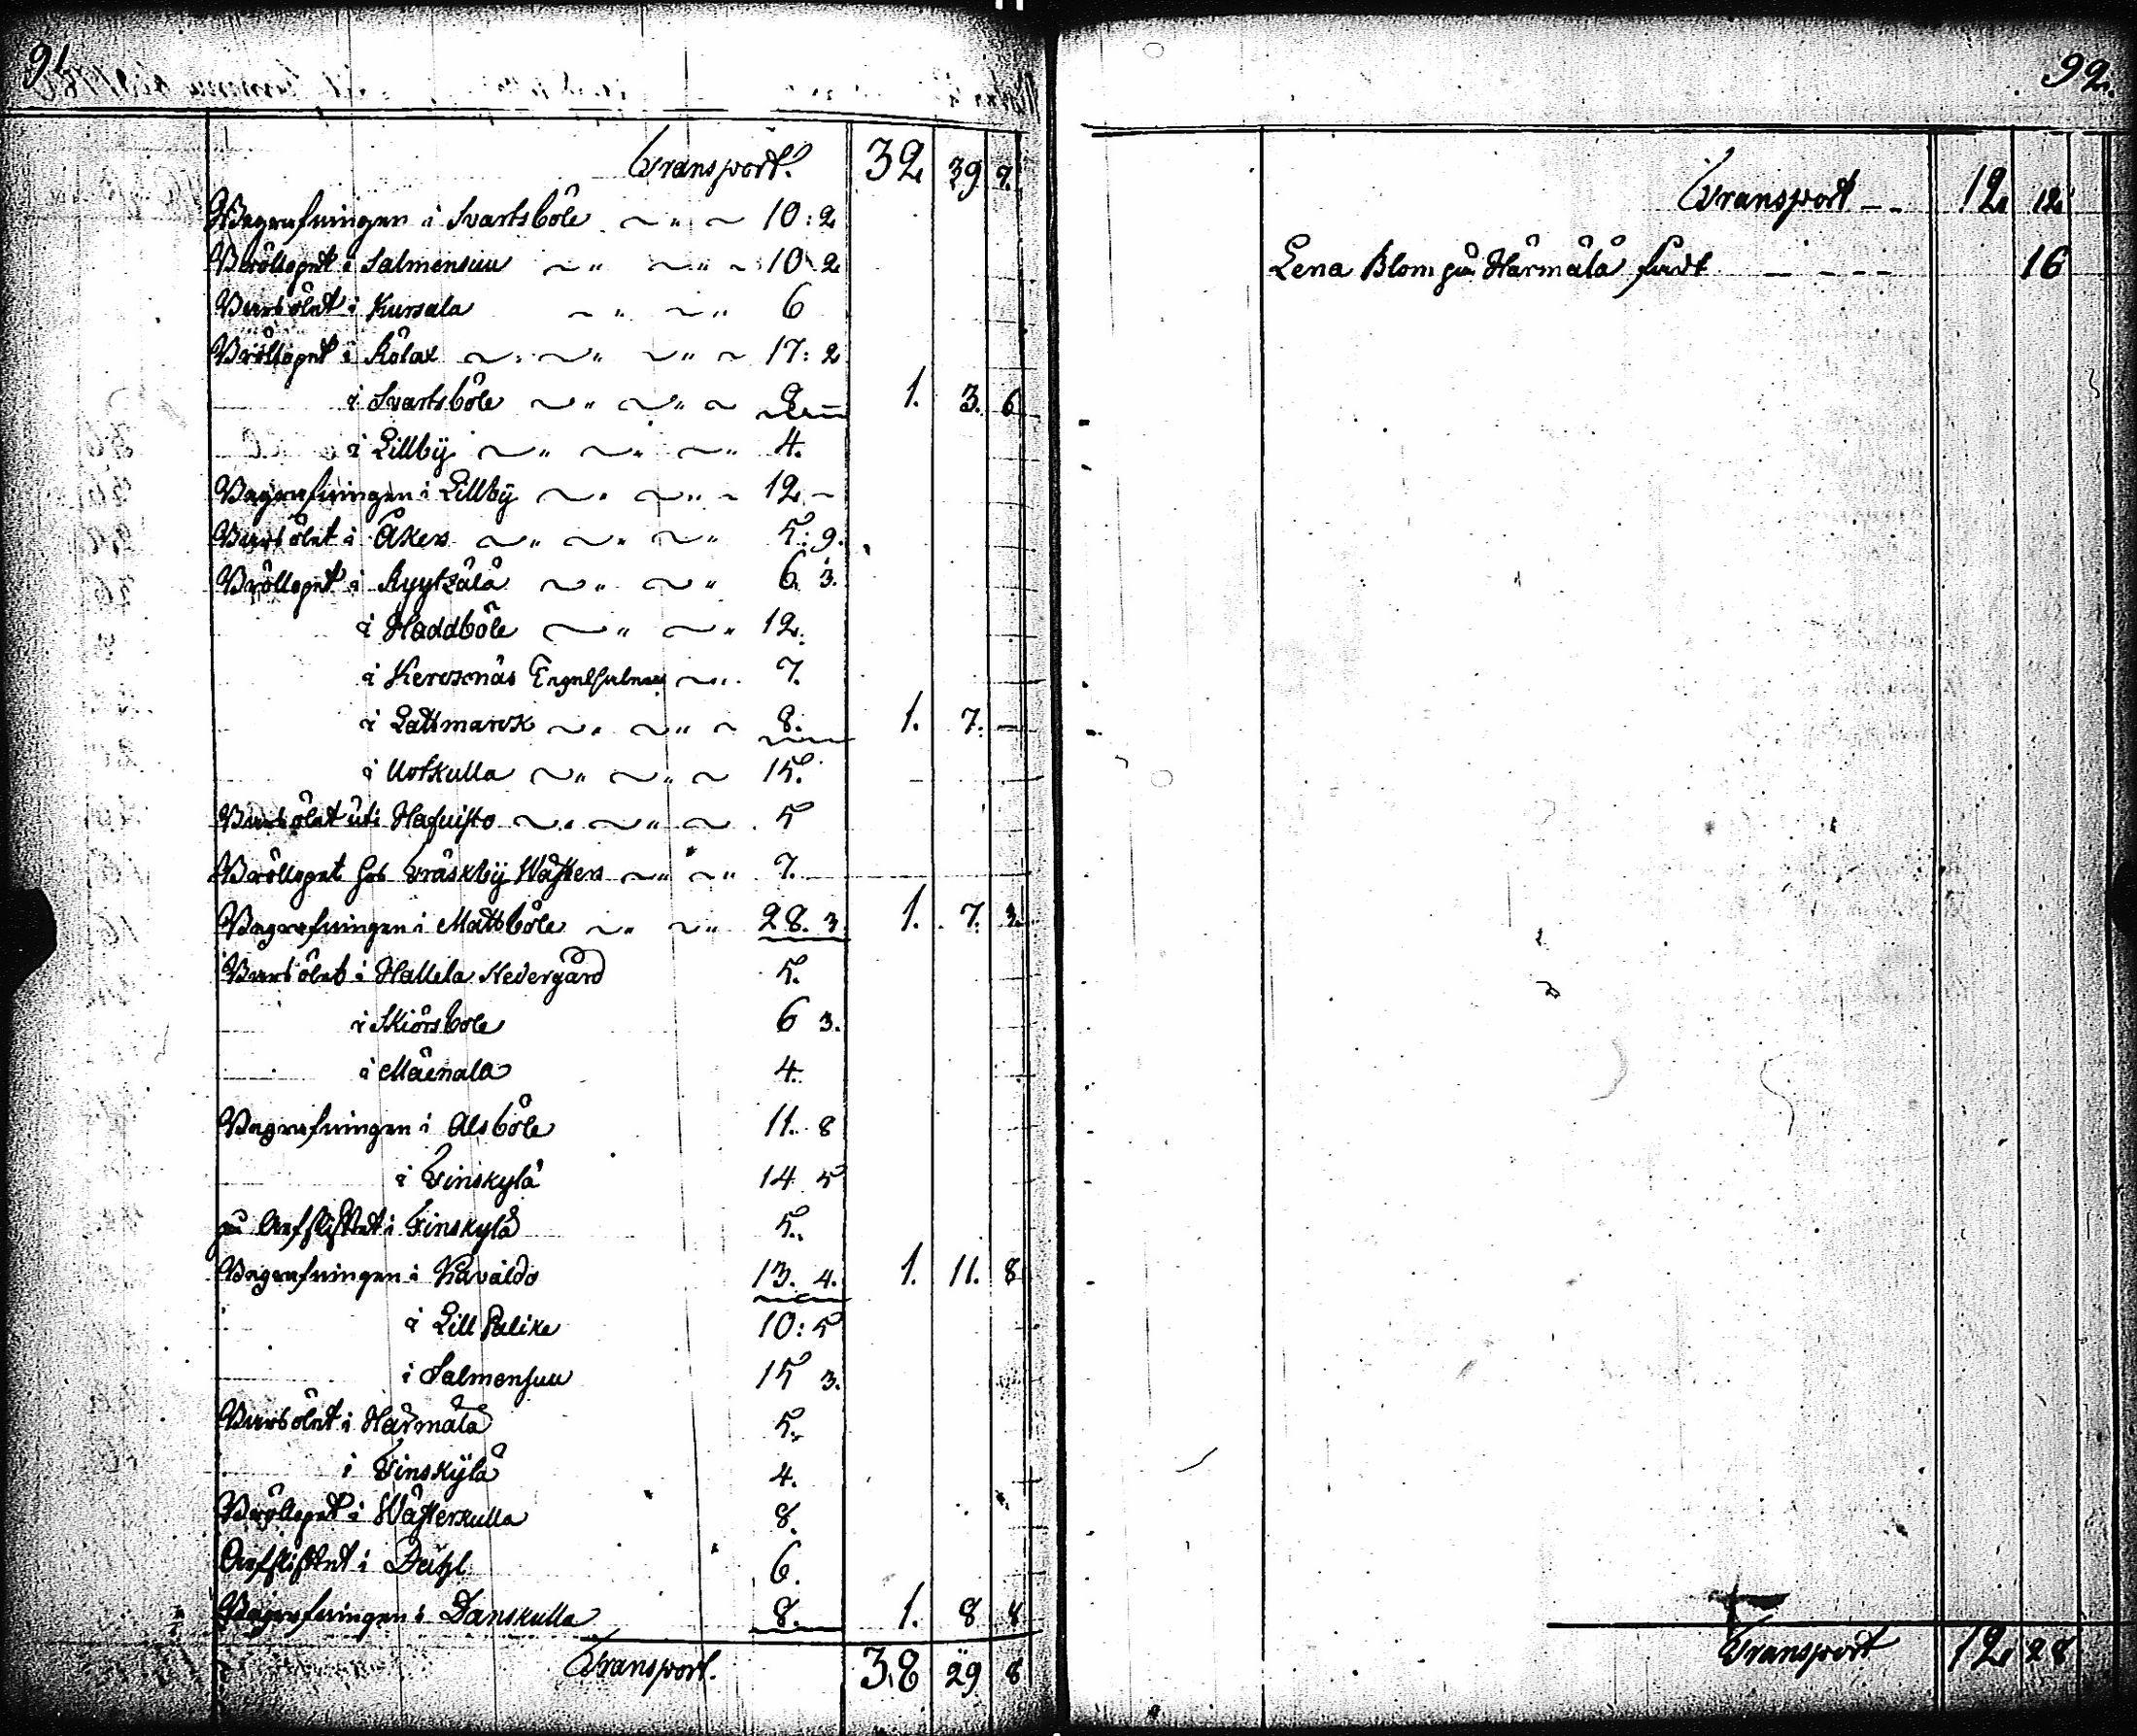 91.
Transport. 32 39 9.
Begrafningen i Svartsböle 10:2
Bröllopet i Salmensuu 10 2
Barsölet i Kursala 6
Bröllopet i Kölax 17:2
i Svartsböle 8 – 1. 3. 6
i Lillbÿ 4.
Begrafningen i Lillbÿ 12 –
Barsölet i Åkers 5:9.
Bröllopet i Kyytkälä 6. 3.
i Haddböle 12.
i Kervsnäs 7.
i Lattmark 8. 1. 7. –
i Uotskulla 15.
Barsölet uti Hafvisto 5
Bröllopet hos Träskbÿ Wästers 7.
Begrafningen i Mattböle 28. 3 1. 7. 3.
Barsölet i Hallela Nedergård 5.
i Skiörsbole 6 3.
i Maënala 4.
Begrafningen i Alsböle 11. 8
i Finskylä 14 5
på Arfskiftet i Finskylä 5.
Begrafningen i Kavaldo 13. 4. 1. 11. 8
i Lill Palike 10:5
i Salmensuu 15 3.
Barsölet i Härmälä 5.
i Finskÿlä 4.
Bröllopet i Wästerkulla 8.
Arfskiftet i 6.
Begrafningen i Danskulla 8. 1. 8 8
Transport. 38 29 8
92.
Transport 12 12
Lena Blom på Härmälä 16
Transport 12 28